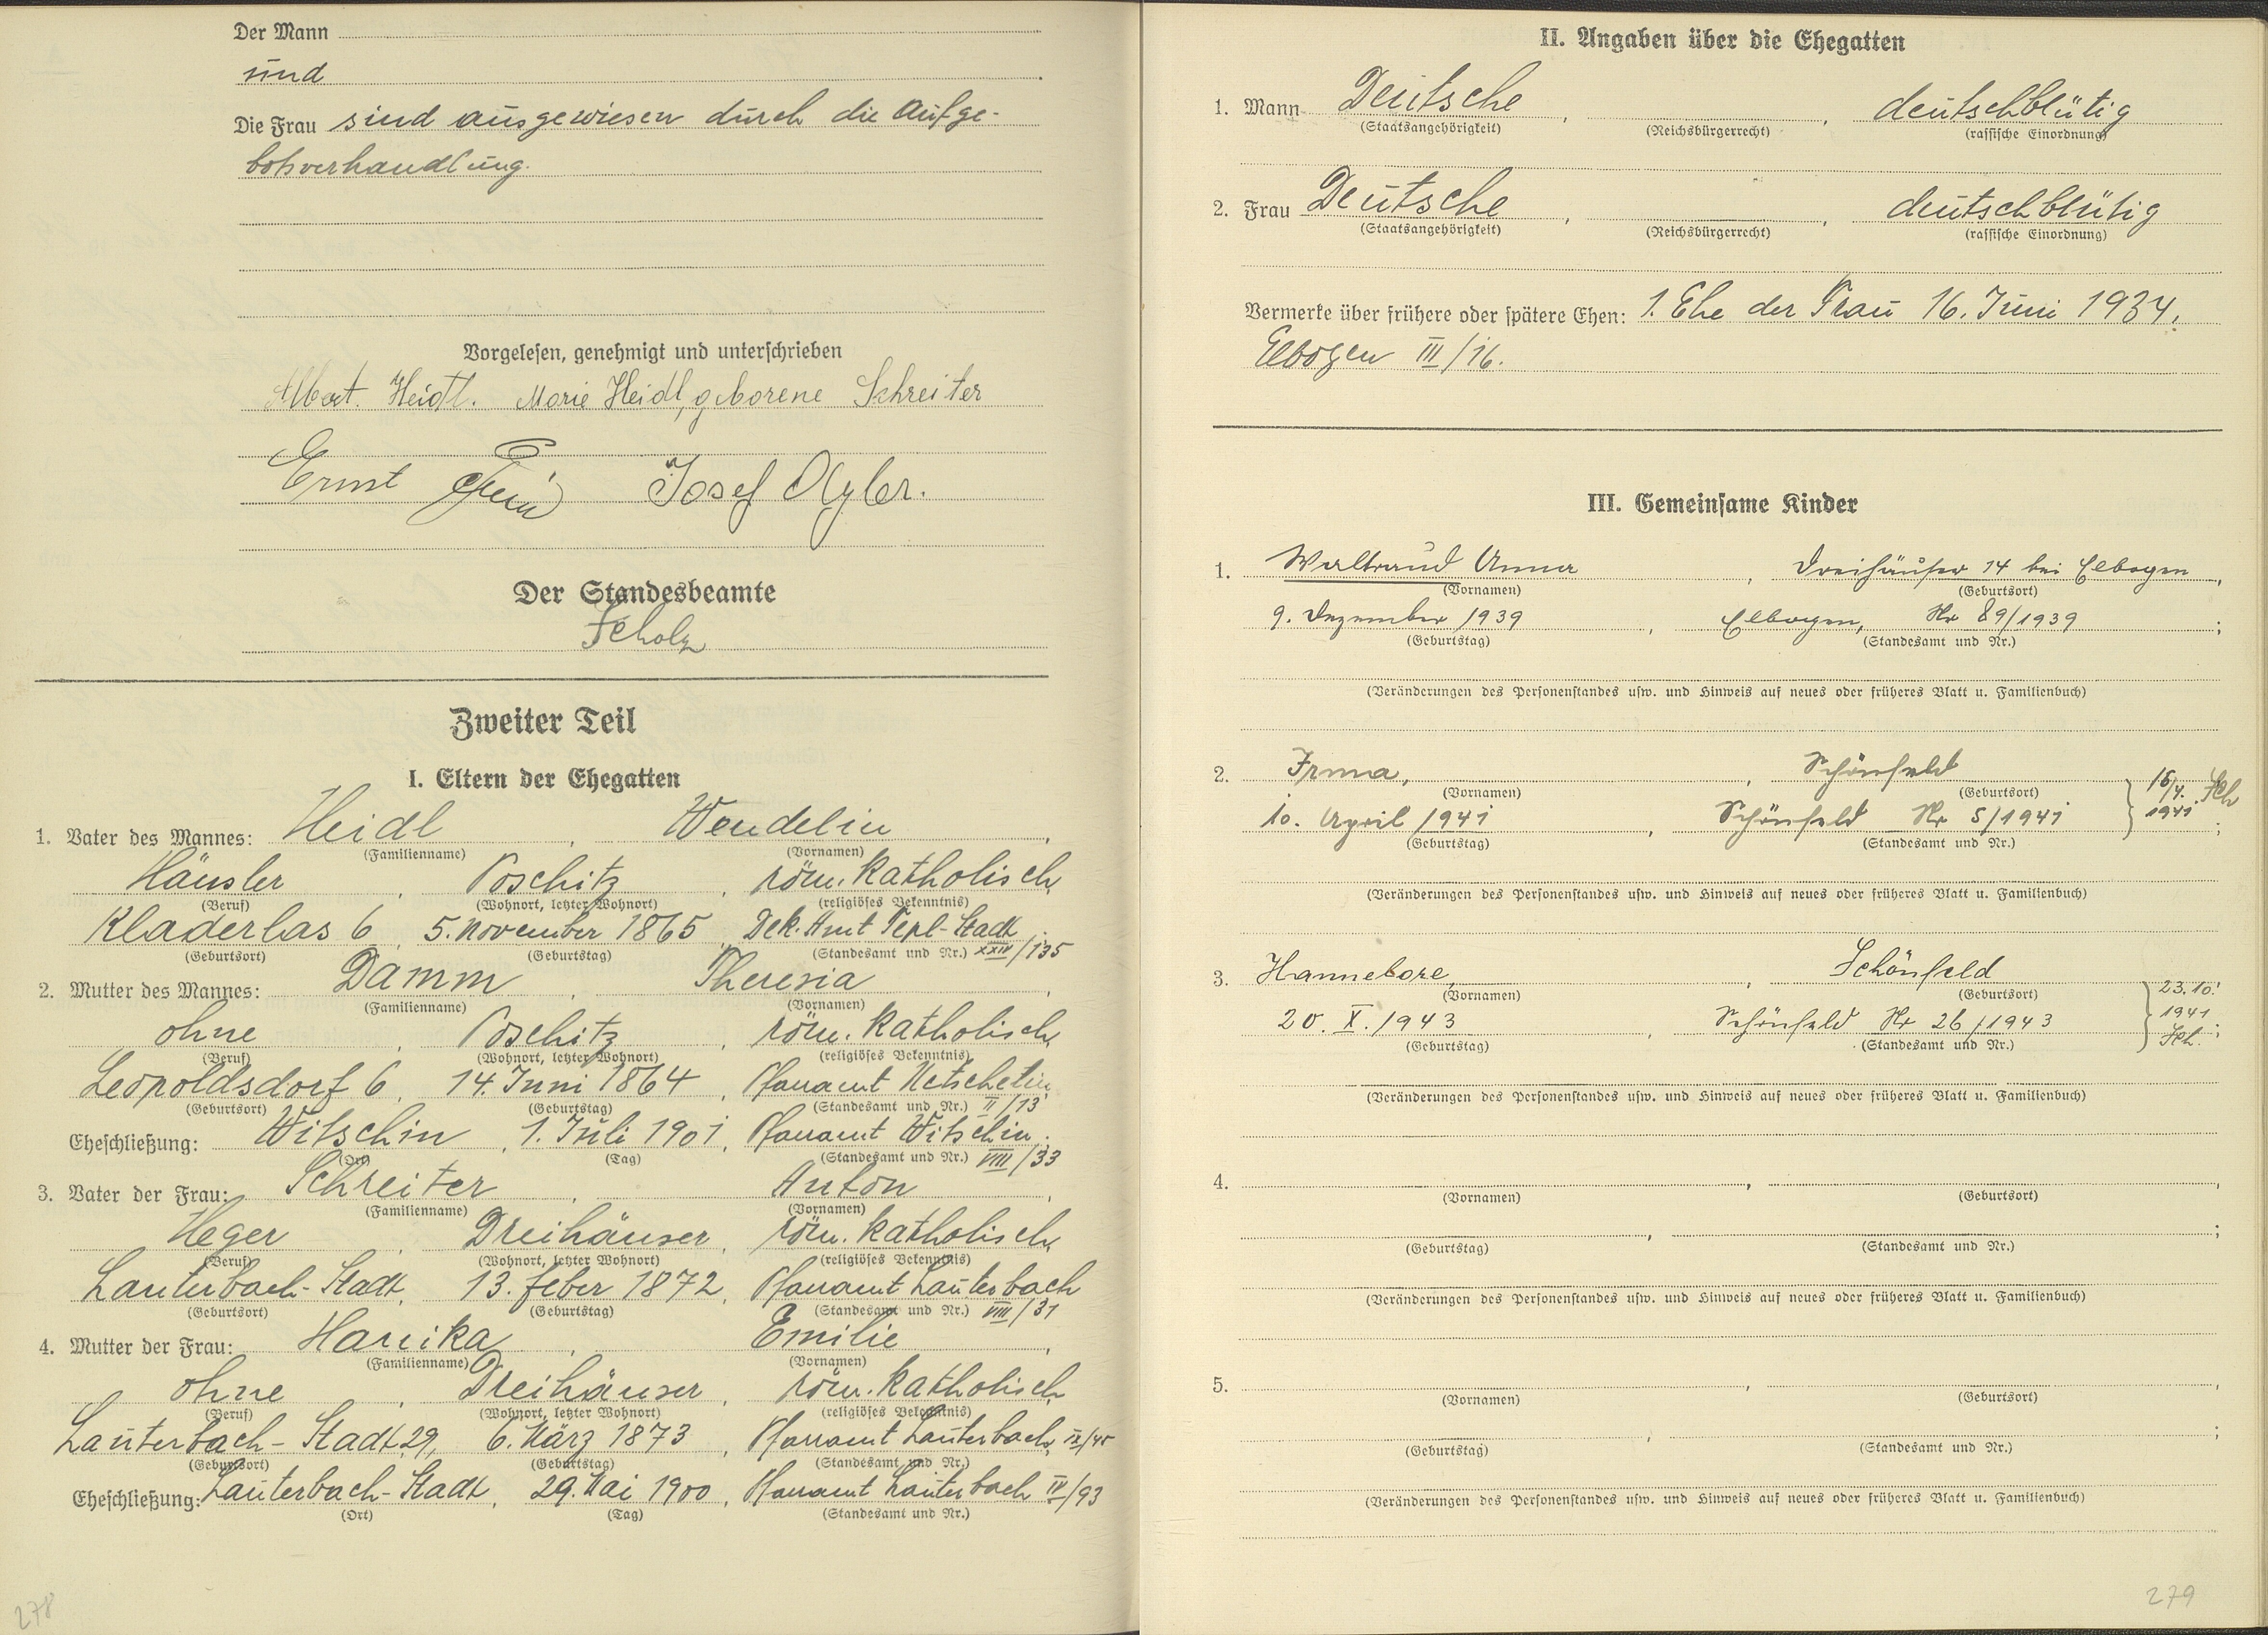 Der Mann
und
Die Frau sind ausgewiesen durch die Aufge-
botsverhandlung.
Vorgelesen, genehmigt und unterschrieben
Albert Heidl. Marie Heidl, geborene Schreiter
Ernst Josef
Der Standesbeamte
Scholz
Zweiter Teil
I. Eltern der Ehegatten
1. Vater des Mannes: Heidl, Wendelin,
(Familienname) (Vornamen)
Häusler, Poschitz, röm. katholisch,
(Beruf) (Wohnort, letzter Wohnort) (religiöses Bekenntnis)
Kladerlas 6, 5. November 1865, Dek. Amt Tepl-Stadt;
(Geburtsort) (Geburtstag) (Standesamt und Nr.) XXIV/135
2. Mutter des Mannes: Damm, Theresia,
(Familienname) (Vornamen)
ohne, Poschitz, röm. katholisch,
(Beruf) (Wohnort, letzter Wohnort) (religiöses Bekenntnis)
Leopoldsdorf 6, 14. Juni 1864, Pfarramt Netschetin
(Geburtsort) (Geburtstag) (Standesamt und Nr.) II/13
Eheschließung: Witschin, 1. Juli 1901, Pfarramt Witschin.
(Ort) (Tag) (Standesamt und Nr.) VIII/33
3. Vater der Frau: Schreiter, Anton,
(Familienname) (Vornamen)
Heger, Dreihäuser, röm. katholisch,
(Beruf) (Wohnort, letzter Wohnort) (religiöses Bekenntnis)
Lauterbach-Stadt, 13. Feber 1872, Pfarramt Lauterbach
(Geburtsort) (Geburtstag) (Standesamt und Nr.) VIII/31
4. Mutter der Frau: Harika, Emilie,
(Familienname) (Vornamen)
ohne, Dreihäuser, röm. katholisch,
(Beruf) (Wohnort, letzter Wohnort) (religiöses Bekenntnis)
Lauterbach-Stadt 29, 6. März 1873, Pfarramt Lauterbach,
(Geburtsort) (Geburtstag) (Standesamt und Nr.)
Eheschließung: Lauterbach-Stadt, 29. Mai 1900, Pfarramt Lauterbach IV/93
(Ort) (Tag) (Standesamt und Nr.)
278
II. Angaben über die Ehegatten
1. Mann Deutsche, , deutschblütig
(Staatsangehörigkeit) (Reichsbürgerrecht) (rassische Einordnung)
2. Frau Deutsche, , deutschblütig
(Staatsangehörigkeit) (Reichsbürgerrecht) (rassische Einordnung)
Vermerke über frühere oder spätere Ehen: 1. Ehe der Frau 16. Juni 1934.
Elbogen III/16.
III. Gemeinsame Kinder
1. Waltraud Anna, Dreihäuser 14 bei Elbogen,
(Vornamen) (Geburtsort)
9. Dezember 1939, Elbogen, Nr 89/1939;
(Geburtstag) (Standesamt und Nr.)
(Veränderungen des Personenstandes usw. und Hinweis auf neues oder früheres Blatt u. Familienbuch)
2. Irma, , Schönfeld 15/4. Sch
(Vornamen) (Geburtsort)
10. April 1941, Schönfeld Nr 5/1941 1941;
(Geburtstag) (Standesamt und Nr.)
(Veränderungen des Personenstandes usw. und Hinweis auf neues oder früheres Blatt u. Familienbuch)
3. Hannelore, , Schönfeld
(Vornamen) (Geburtsort) 23.10.
20. X. 1943, Schönfeld Nr 26/1943 1941
(Geburtstag) (Standesamt und Nr.) Sch. ;
(Veränderungen des Personenstandes usw. und Hinweis auf neues oder früheres Blatt u. Familienbuch)
4. , ,
(Vornamen) (Geburtsort)
, ;
(Geburtstag) (Standesamt und Nr.)
(Veränderungen des Personenstandes usw. und Hinweis auf neues oder früheres Blatt u. Familienbuch)
5. , ,
(Vornamen) (Geburtsort)
, ;
(Geburtstag) (Standesamt und Nr.)
(Veränderungen des Personenstandes usw. und Hinweis auf neues oder früheres Blatt u. Familienbuch)
279